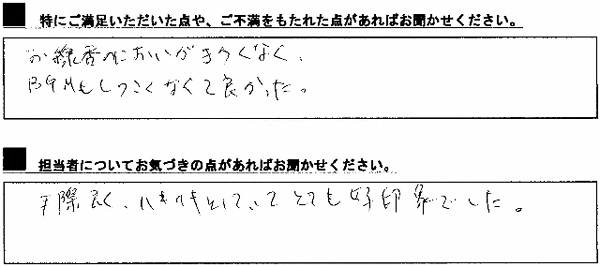 ■ 特にご満足いただいた点や、ご不満をもたれた点があればお聞かせください。
お線香のにおいがきつくなく、
BGMもしつこくなくて良かった。
■ 担当者についてお気づきの点があればお聞かせください。
手際良く、ハキハキとしていてとても好印象でした。